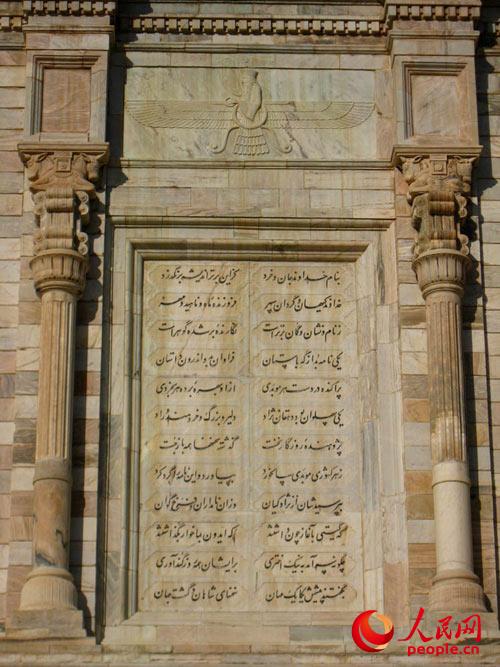 بنام خداوند جان و خرد کزین برتر اندیشه برنگذرد
خداوند کیهان و گردان سپهر فروزنده ماه و ناهید و مهر
ز نام و نشان و گمان برتر است نگارنده بر شده گوهر است
یکی نامه بد از گه باستان فراوان بدو اندرون داستان
پراکنده در دست هر موبدی ازو بهره برده هر بخردی
یکی پهلوان بود دهقان نژاد دلیر و بزرگ و خردمند و راد
پژوهنده روزگار نخست گذشته سخنها همه باز جست
ز هر کشوری موبدی سالخورد بیاورد و این نامه را گرد کرد
بپرسیدشان از نژاد کیان وزان نامداران فرخ گوان
که گیتی بآغاز چون داشتند که ایدون بما خوار بگذاشتند
چگونه سر آمد به نیک اختری برایشان همه روز کندآوری
بگفتند پیشش یکایک مهان سخنهای شاهان و گشت جهان
人民网
people.cn
人民网
people.cn